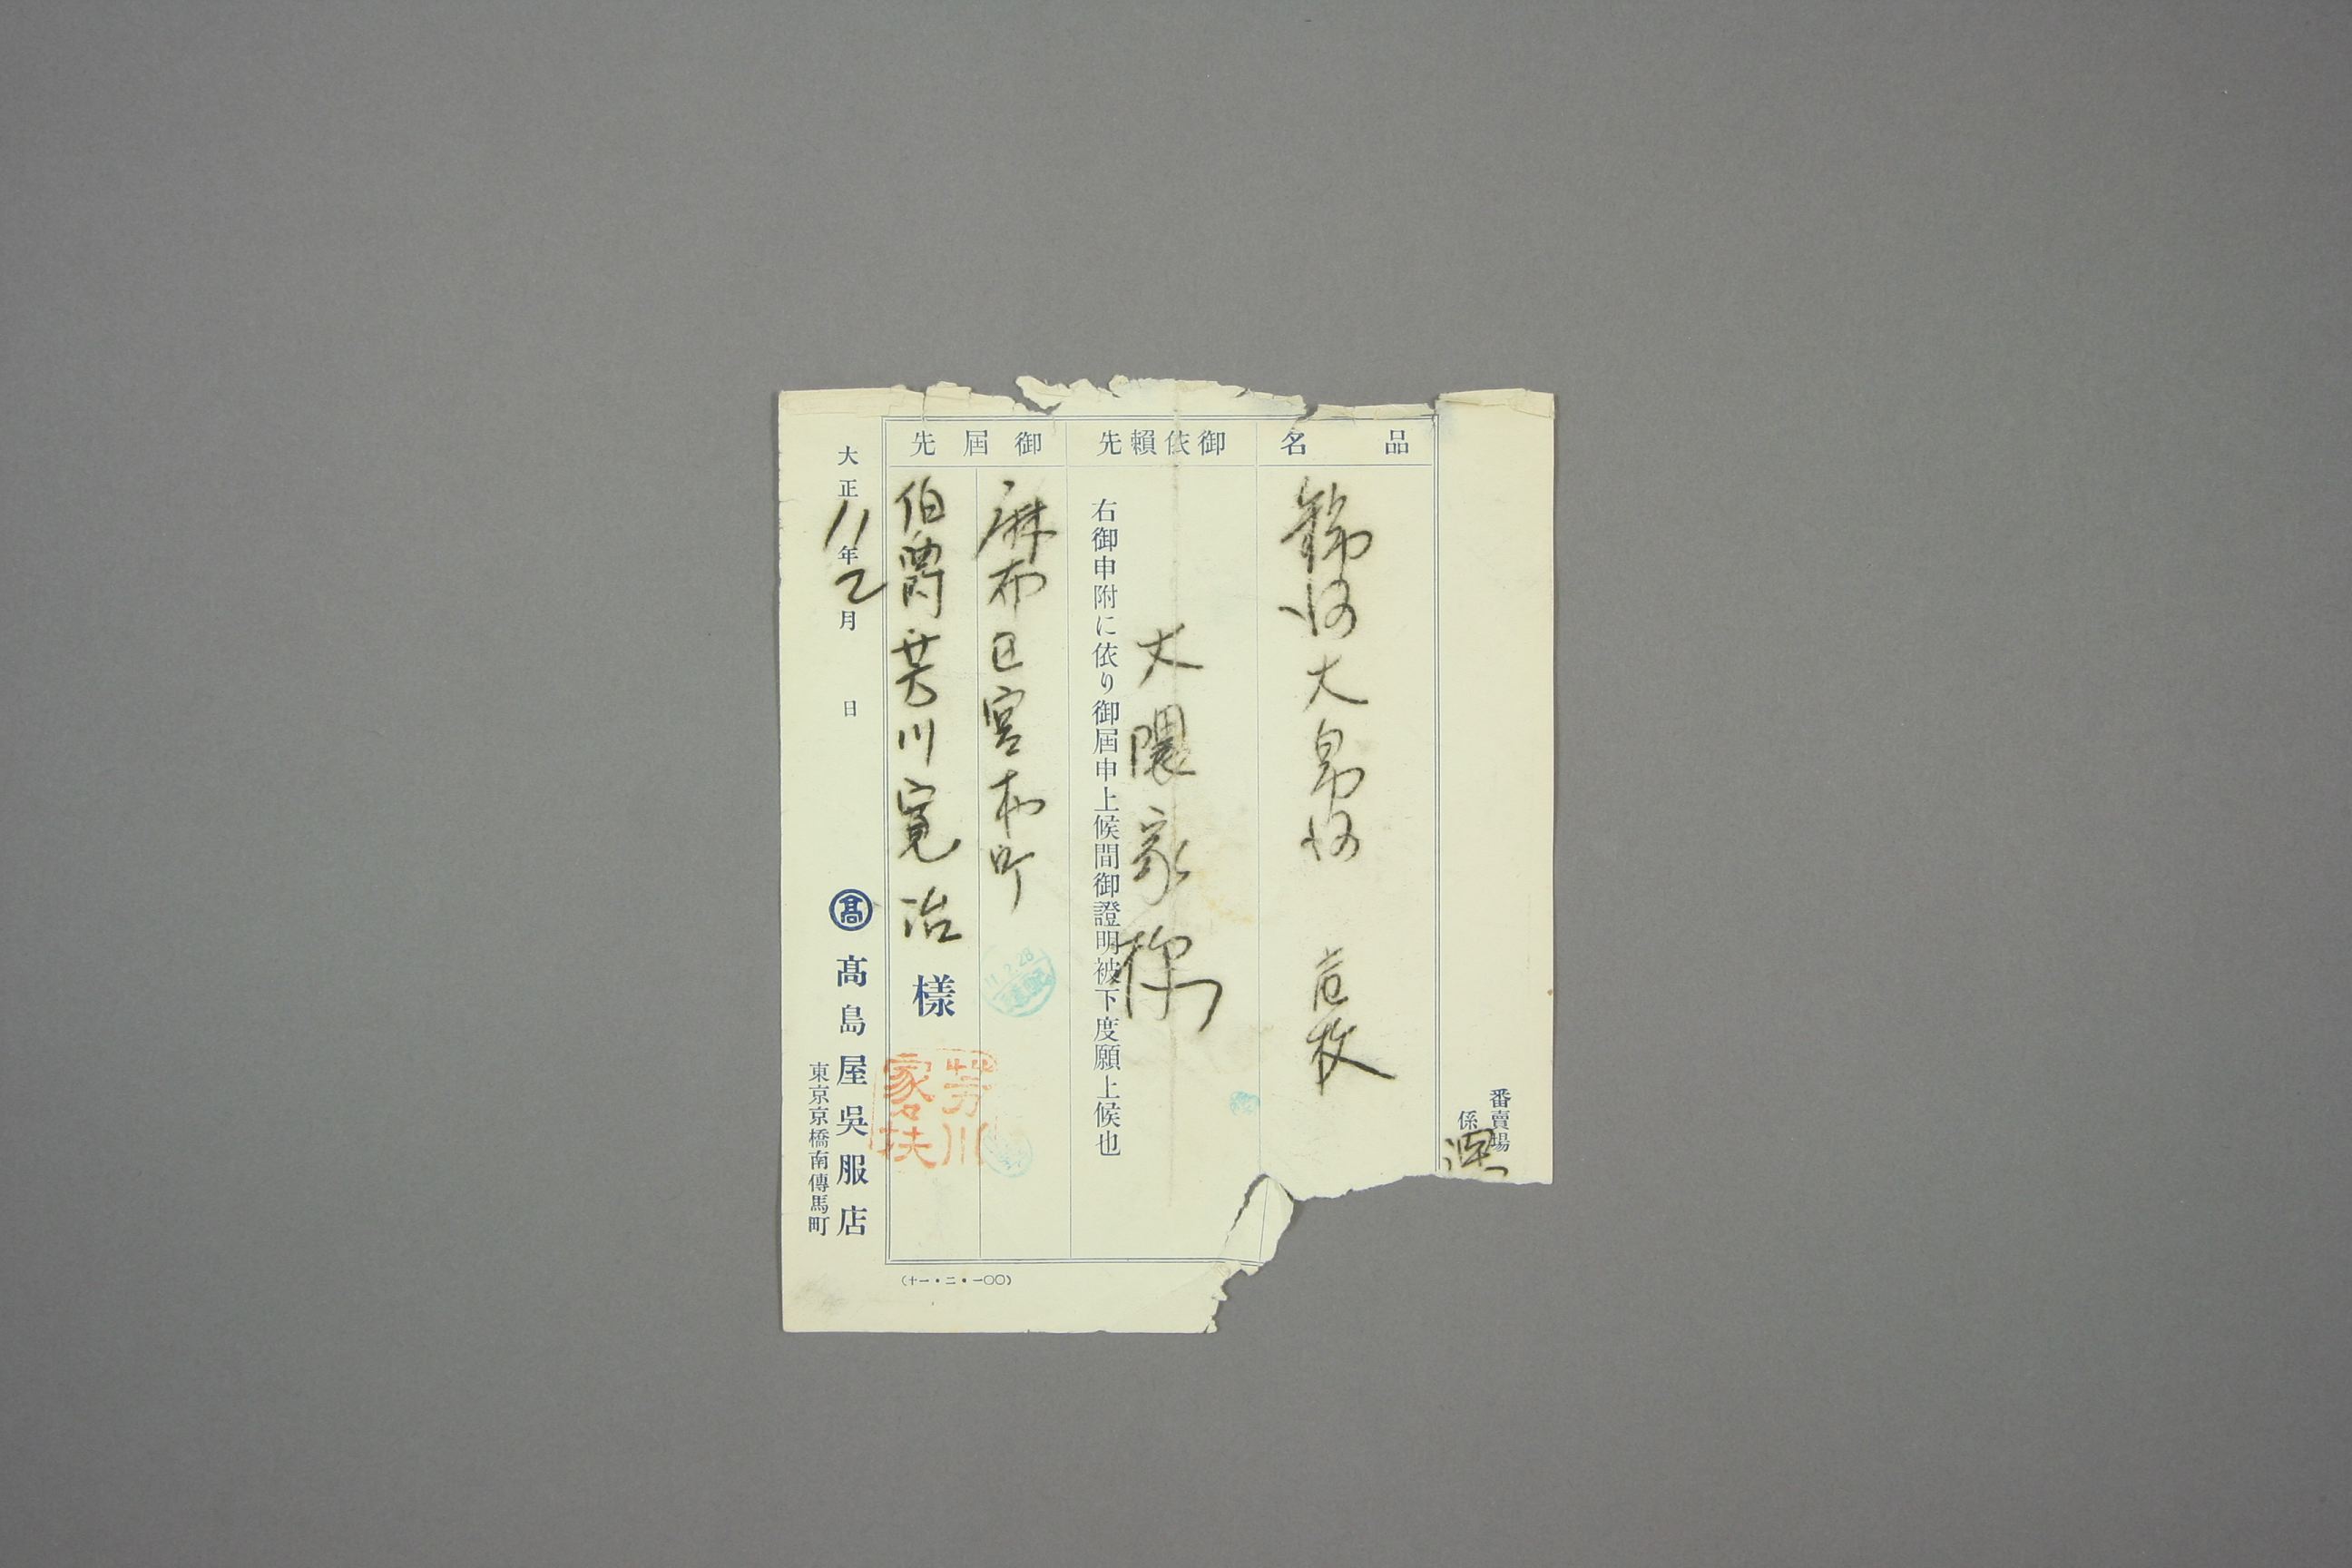 番賣場
係
品名
錦紗大帛紗 壱枚
御依頼先
大隈家様
右御申附に依り御屆申上候間御證明被下度願上候也
御屆先
麻布区宮村町
伯爵芳川寛治様
芳川家家扶
大正11年2月 日
髙 髙島屋呉服店
東京京橋南傳馬町
(十一・二・一〇〇)